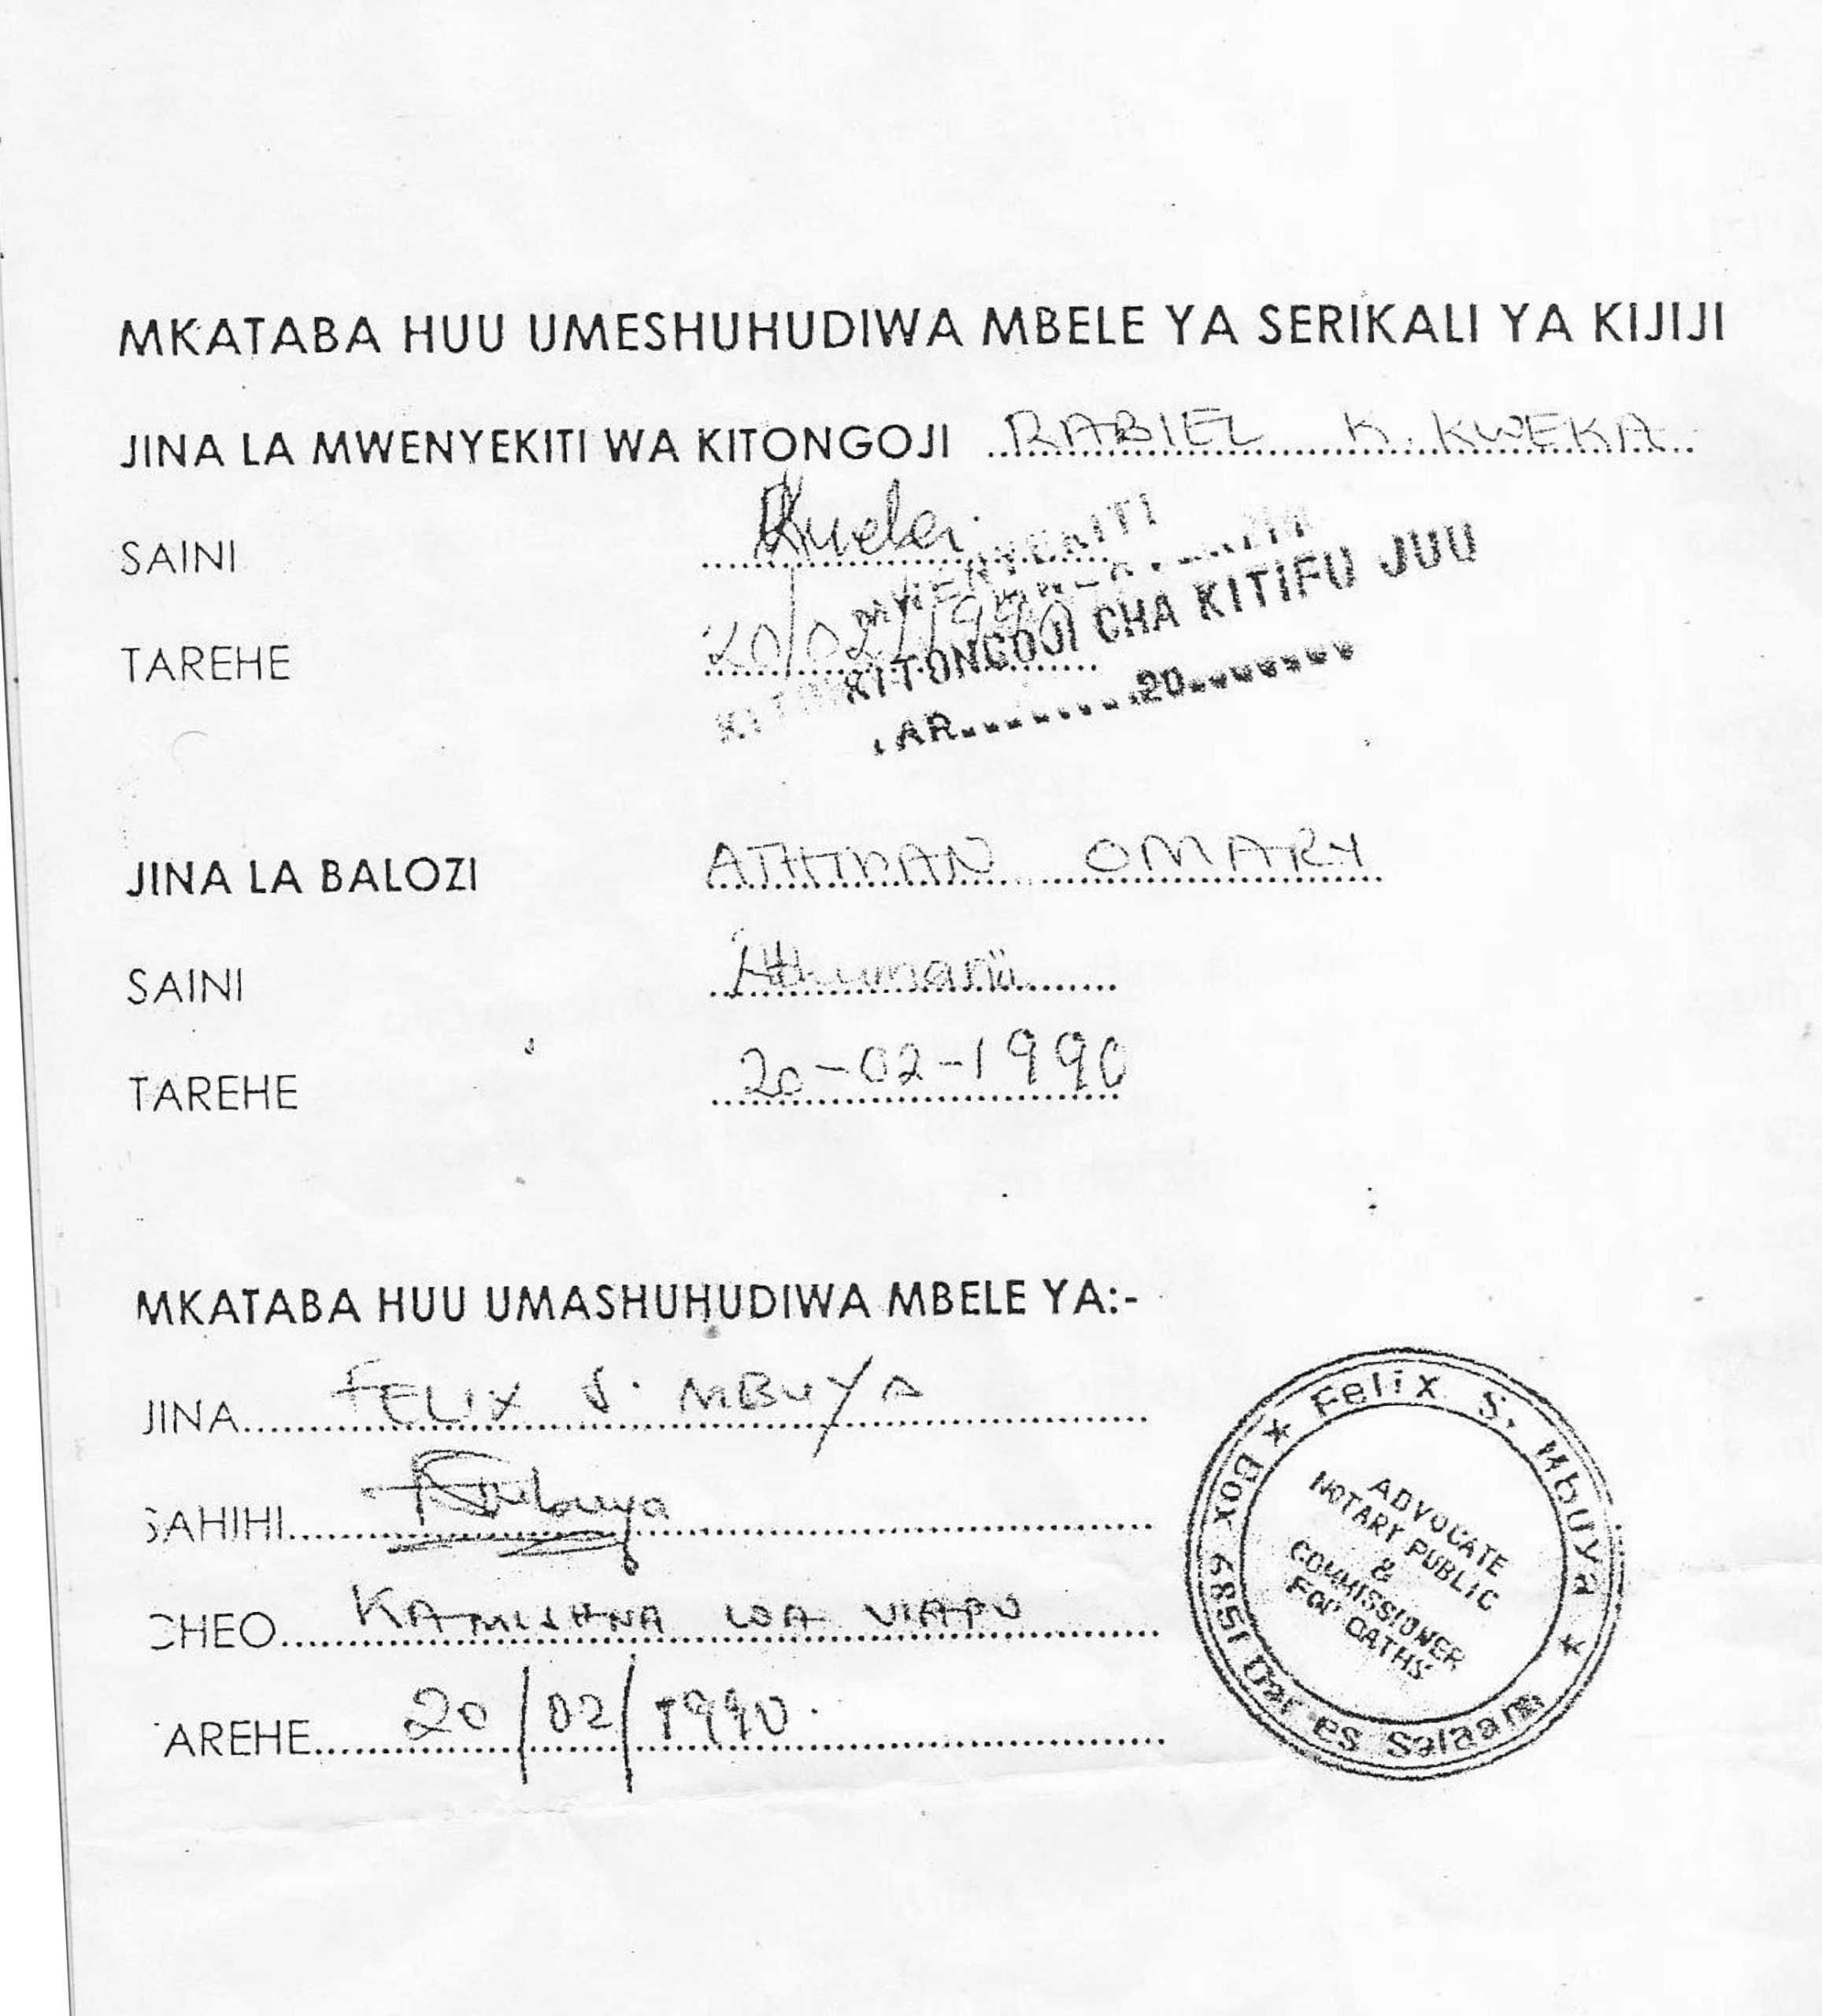 MKATABA HUU UMESHUHUDIWA MBELE YA SERIKALI YA KIJIJI
JINA LA MWENYEKITI WA KITONGOJI RABIEL K. KWEKA
SAINI
MWENYEKITI
TAREHE 20/02/1990
KITONGOJI CHA KITIFU JUU
20
JINA LA BALOZI OMARY
SAINI Athumani
TAREHE 20-02-1990
MKATABA HUU UMASHUHUDIWA MBELE YA:-
JINA FELIX S. MBUYA
SAHIHI
CHEO KAMISHNA WA VIAPO
AREHE 20/02/1990
Felix S. Mbuya
Box 15819 Dar es Salaam
ADVOCATE
NOTARY PUBLIC
&
COMMISSIONER
FOR OATHS